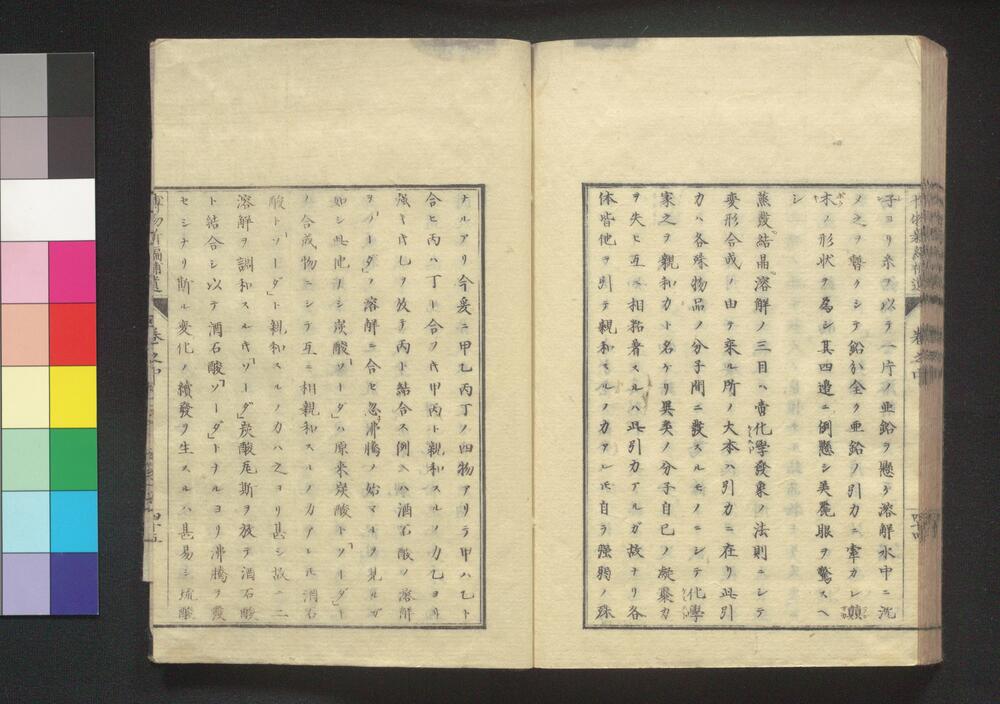 子ヨリ糸ヲ以テ一片ノ亜鉛ヲ懸ケ溶解水中ニ沈
ノ之ヲ暫クシテ鉛ガ全ク亜鉛ノ引力ニ牽カレ顛
木ノ形状ヲ為シ其四邉ニ倒懸シ美麗眼ヲ驚スヘ
シ
蒸發結晶溶解ノ三目ハ啻化學發象ノ法則ニシテ
変形合成ノ由テ来ル所ノ大本ハ引力ニ在リ此引
力ハ各殊物品ノ分子間ニ發スルモノニシテ化學
家之ヲ親和力ト名ケリ異类ノ分子自已ノ凝聚力
ヲ失ヒ互ニ相黏著スルハ此引力アルガ故ナリ各
体皆他ヲ引テ親和スルノ力アレ𪜈自ラ強弱ノ殊
巻之中
四十四
ナルアリ今爰ニ甲乙丙丁ノ四物アリテ甲ハ乙ト
合ヒ丙ハ丁ト合フ𪜈甲丙ト親和スルノ力乙ヨリ
強ケ𪜈乙ヲ放テ丙ト結合ス例ヘハ酒石酸ノ溶解
ヲ「ソーダ」ノ溶解ニ合セ忽沸騰ノ始マルヲ見ルガ
如シ此他ナシ炭酸「ソーダ」ハ原来炭酸ト「ソーダ」ト
ノ合成物ニシテ互ニ相親和スルノ力アレ𪜈酒石
酸ト「ソーダ」ト親和スルノ力ハ之ヨリ甚シ故ニ二
溶解ヲ調和スル𪜈「ソーダ」炭酸瓦斯ヲ放テ酒石酸
ト結合シ以テ酒石酸「ソーダ」トナルヨリ沸騰ヲ發
セシナリ斯ル変化ノ續發ヲ生スルハ甚易シ硫酸
博物新編補遺
巻之中
四十五